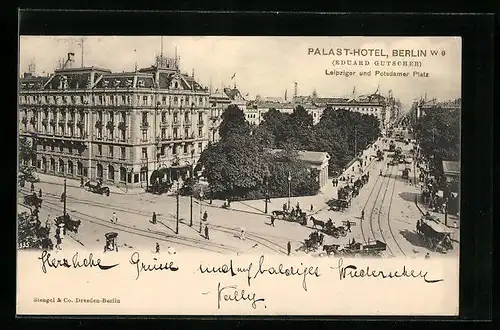 PALAST-HOTEL, BERLIN W 9
(EDUARD GUTSCHER)
Leipziger und Potsdamer Platz
335
Herzliche Grüsse und auf baldiges Wiedersehen
Stengel & Co. Dresden-Berlin